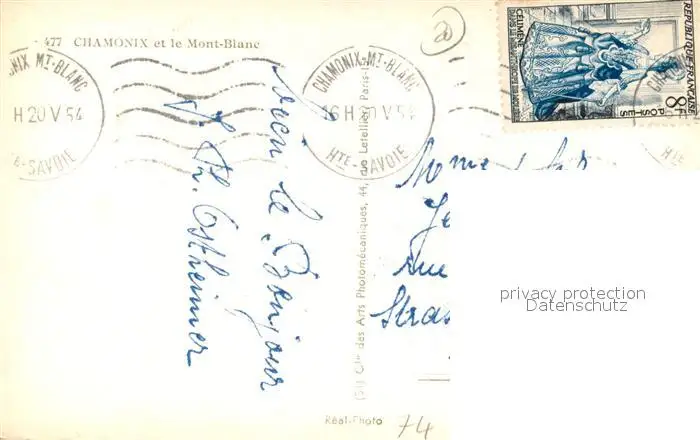 477 CHAMONIX et le Mont-Blanc
CHAMONIX-MT-BLANC
H 20 V 54
HTE-SAVOIE
CHAMONIX-MT-BLANC
16 H 20 V 54
HTE-SAVOIE
REPUBLIQUE FRANÇAISE
CELIMENE
8F
POSTES
HTE
le Bonjour
Ostheimer
(51) Cie des Arts Photomécaniques, 44, rue Letellier, Paris
Mme
rue
Stras
privacy protection
Datenschutz
Réal-Photo
74
20